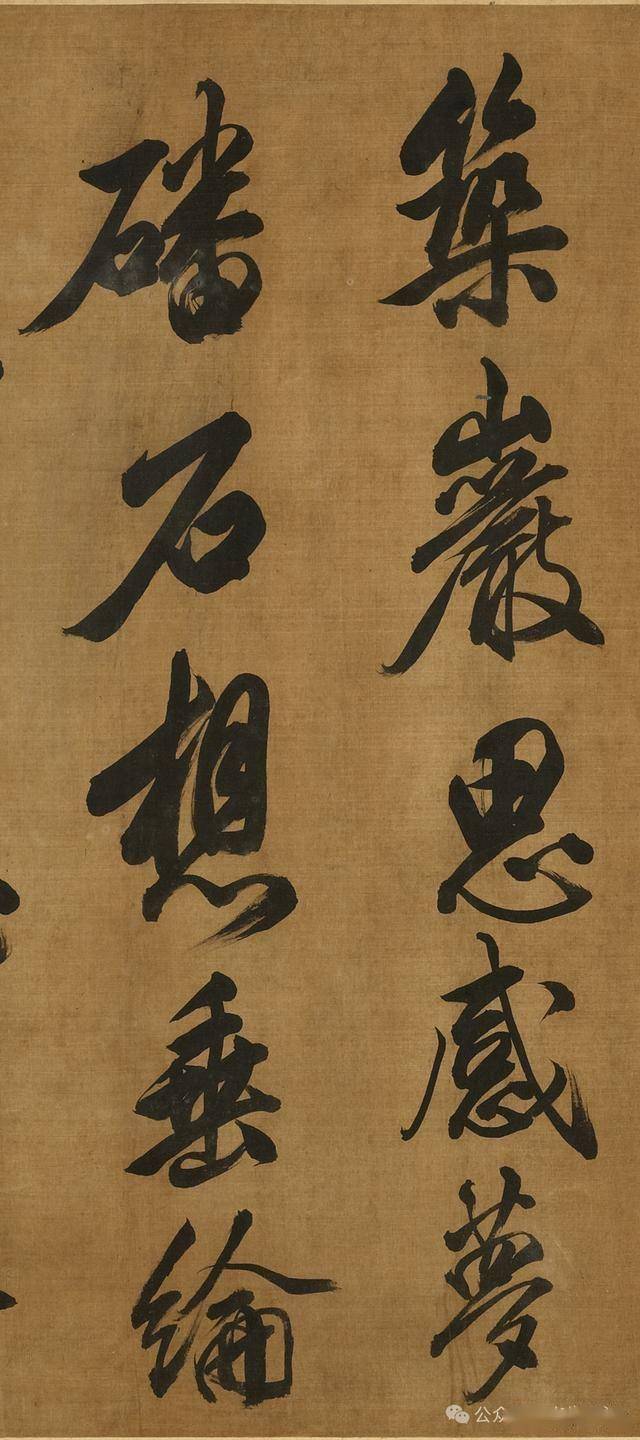 築巖思感夢
磻石想垂綸
公众